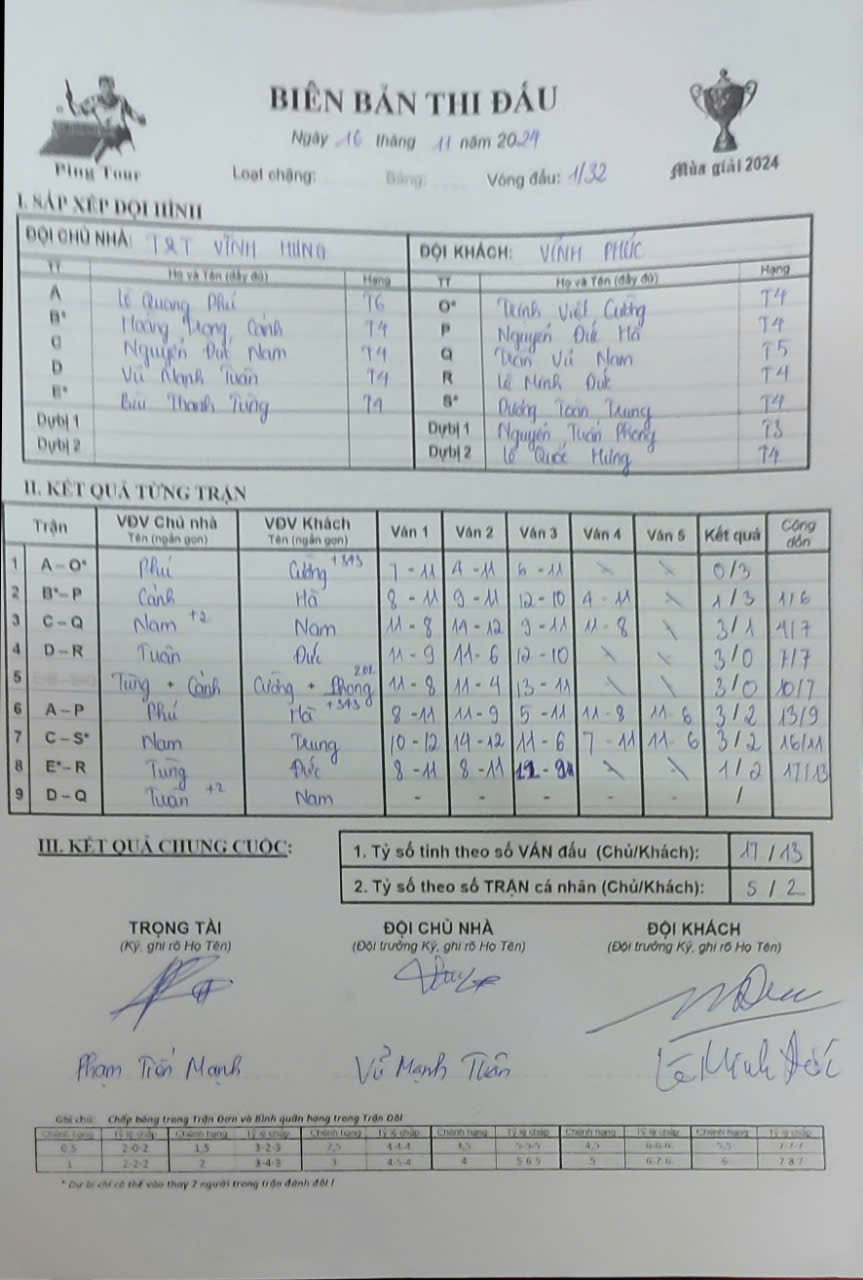 BIÊN BẢN THI ĐẤU
Ngày 16 tháng 11 năm 2024
Ping Tour
Loại chặng: Bảng: Vòng đấu: 1/32
Mùa giải 2024
I. SẮP XẾP ĐỘI HÌNH
ĐỘI CHỦ NHÀ: T&T VĨNH HƯNG ĐỘI KHÁCH: VĨNH PHÚC
TT Họ và Tên (đầy đủ) Hạng TT Họ và Tên (đầy đủ) Hạng
A Lê Quang Phú T6 O* Trịnh Việt Cường T4
B* Hoàng Trọng Cảnh T4 P Nguyễn Đức Hà T4
C Nguyễn Đức Nam T4 Q Trần Vũ Nam T5
D Vũ Mạnh Tuấn T4 R Lê Minh Đức T4
E* Bùi Thanh Tùng T4 S* Dương Toàn Trung T4
Dự bị 1 Dự bị 1 Nguyễn Tuấn Phong T3
Dự bị 2 Dự bị 2 Lê Quốc Hưng T4
II. KẾT QUẢ TỪNG TRẬN
Trận VĐV Chủ nhà Tên (ngắn gọn) VĐV Khách Tên (ngắn gọn) Ván 1 Ván 2 Ván 3 Ván 4 Ván 5 Kết quả Cộng dồn
1 A – O* Phú Cường +343 7 - 11 4 - 11 6 - 11 0/3
2 B* – P Cảnh Hà 8 - 11 9 - 11 12 - 10 4 - 11 1/3 1/6
3 C – Q Nam +2 Nam 11 - 8 14 - 12 9 - 11 11 - 8 3/1 4/7
4 D – R Tuấn Đức 11 - 9 11 - 6 12 - 10 3/0 7/7
5 Tùng + Cảnh Cường + Phong 202 11 - 8 11 - 4 13 - 11 3/0 10/7
6 A – P Phú Hà +343 8 - 11 11 - 9 5 - 11 11 - 8 11 - 6 3/2 13/9
7 C – S* Nam Trung 10 - 12 14 - 12 11 - 6 7 - 11 11 - 6 3/2 16/11
8 E* – R Tùng Đức 8 - 11 8 - 11 1/2 17/13
9 D – Q Tuấn +2 Nam - - - - - /
III. KẾT QUẢ CHUNG CUỘC:
1. Tỷ số tính theo số VÁN đấu (Chủ/Khách): 17 / 13
2. Tỷ số theo số TRẬN cá nhân (Chủ/Khách): 5 / 2
TRỌNG TÀI ĐỘI CHỦ NHÀ ĐỘI KHÁCH
(Ký, ghi rõ Họ Tên) (Đội trưởng Ký, ghi rõ Họ Tên) (Đội trưởng Ký, ghi rõ Họ Tên)
Phạm Tiến Mạnh Vũ Mạnh Tuấn Lê Minh Đức
Ghi chú: Chấp bóng trong Trận Đơn và Bình quân hạng trong Trận Đôi
Chênh hạng Tỷ lệ chấp Chênh hạng Tỷ lệ chấp Chênh hạng Tỷ lệ chấp Chênh hạng Tỷ lệ chấp Chênh hạng Tỷ lệ chấp Chênh hạng Tỷ lệ chấp
0,5 2-0-2 1,5 3-2-3 2,5 4-4-4 3,5 5-5-5 4,5 6-6-6 5,5 7-7-7
1 2-2-2 2 3-4-3 3 4-5-4 4 5-6-5 5 6-7-6 6 7-8-7
* Dự bị chỉ có thể vào thay 2 người trong trận đánh đôi !